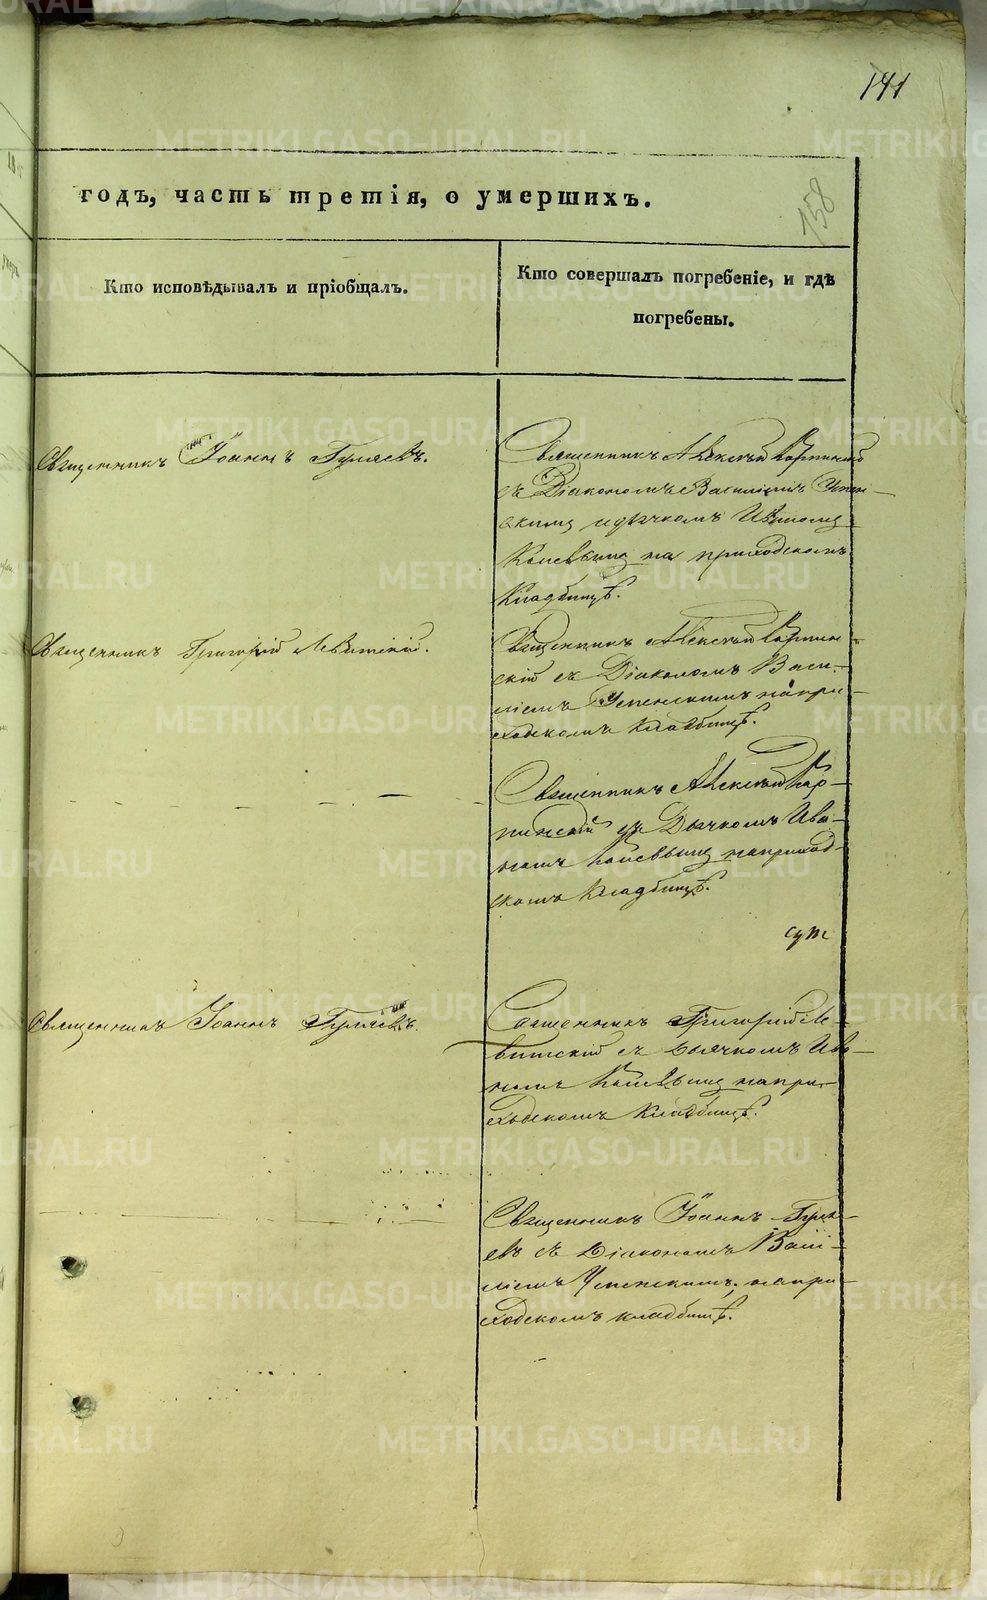 141
158
годъ, часть третія, о умершихъ.
Кто исповѣдывалъ и пріобщалъ.
Кто совершалъ погребеніе, и гдѣ
погребены.
Священникъ Іоаннъ Гуляевъ.
Священникъ Алексѣй Карпинскій
съ Діакономъ Василіемъ Успен-
скимъ и дьячкомъ
на приходскомъ
Кладбищѣ.
Священникъ Григорій Левитскій.
Священникъ Алексѣй Карпин-
скій съ Діакономъ Васи-
ліемъ Успенскимъ на при-
ходскомъ Кладбищѣ.
Священникъ Алексѣй Кар-
пинскій съ Дьячкомъ Ива-
номъ на приход-
скомъ Кладбищѣ.
Священникъ Іоаннъ Гуляевъ.
Священникъ Григорій Ле-
витскій съ Дьячкомъ Ива-
номъ на при-
ходскомъ Кладбищѣ.
Священникъ Іоаннъ Гуля-
евъ съ Діакономъ Васи-
ліемъ Успенскимъ, на при-
ходскомъ кладбищѣ.
METRIKI.GASO-URAL.RU